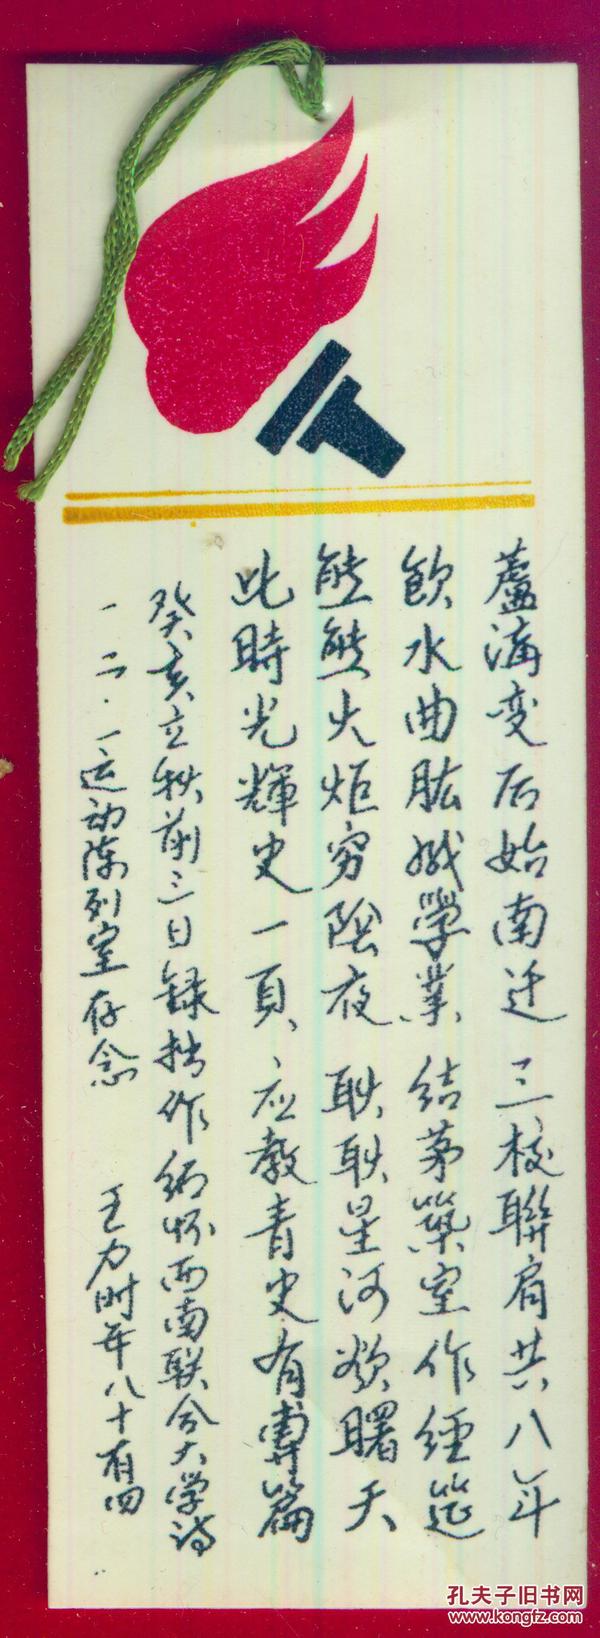 蘆溝变后始南迁 三校聯肩共八年
飲水曲肱㦤學業 结茅築室作經筵
熊熊火炬穷陰夜 耿耿星河欲曙天
此時光輝史一頁 应教青史有專篇
癸亥立秋前三日録拙作缅怀西南联合大学诗
一二·一运动陈列室存念 王力时年八十有四
孔夫子旧书网
www.kongfz.com